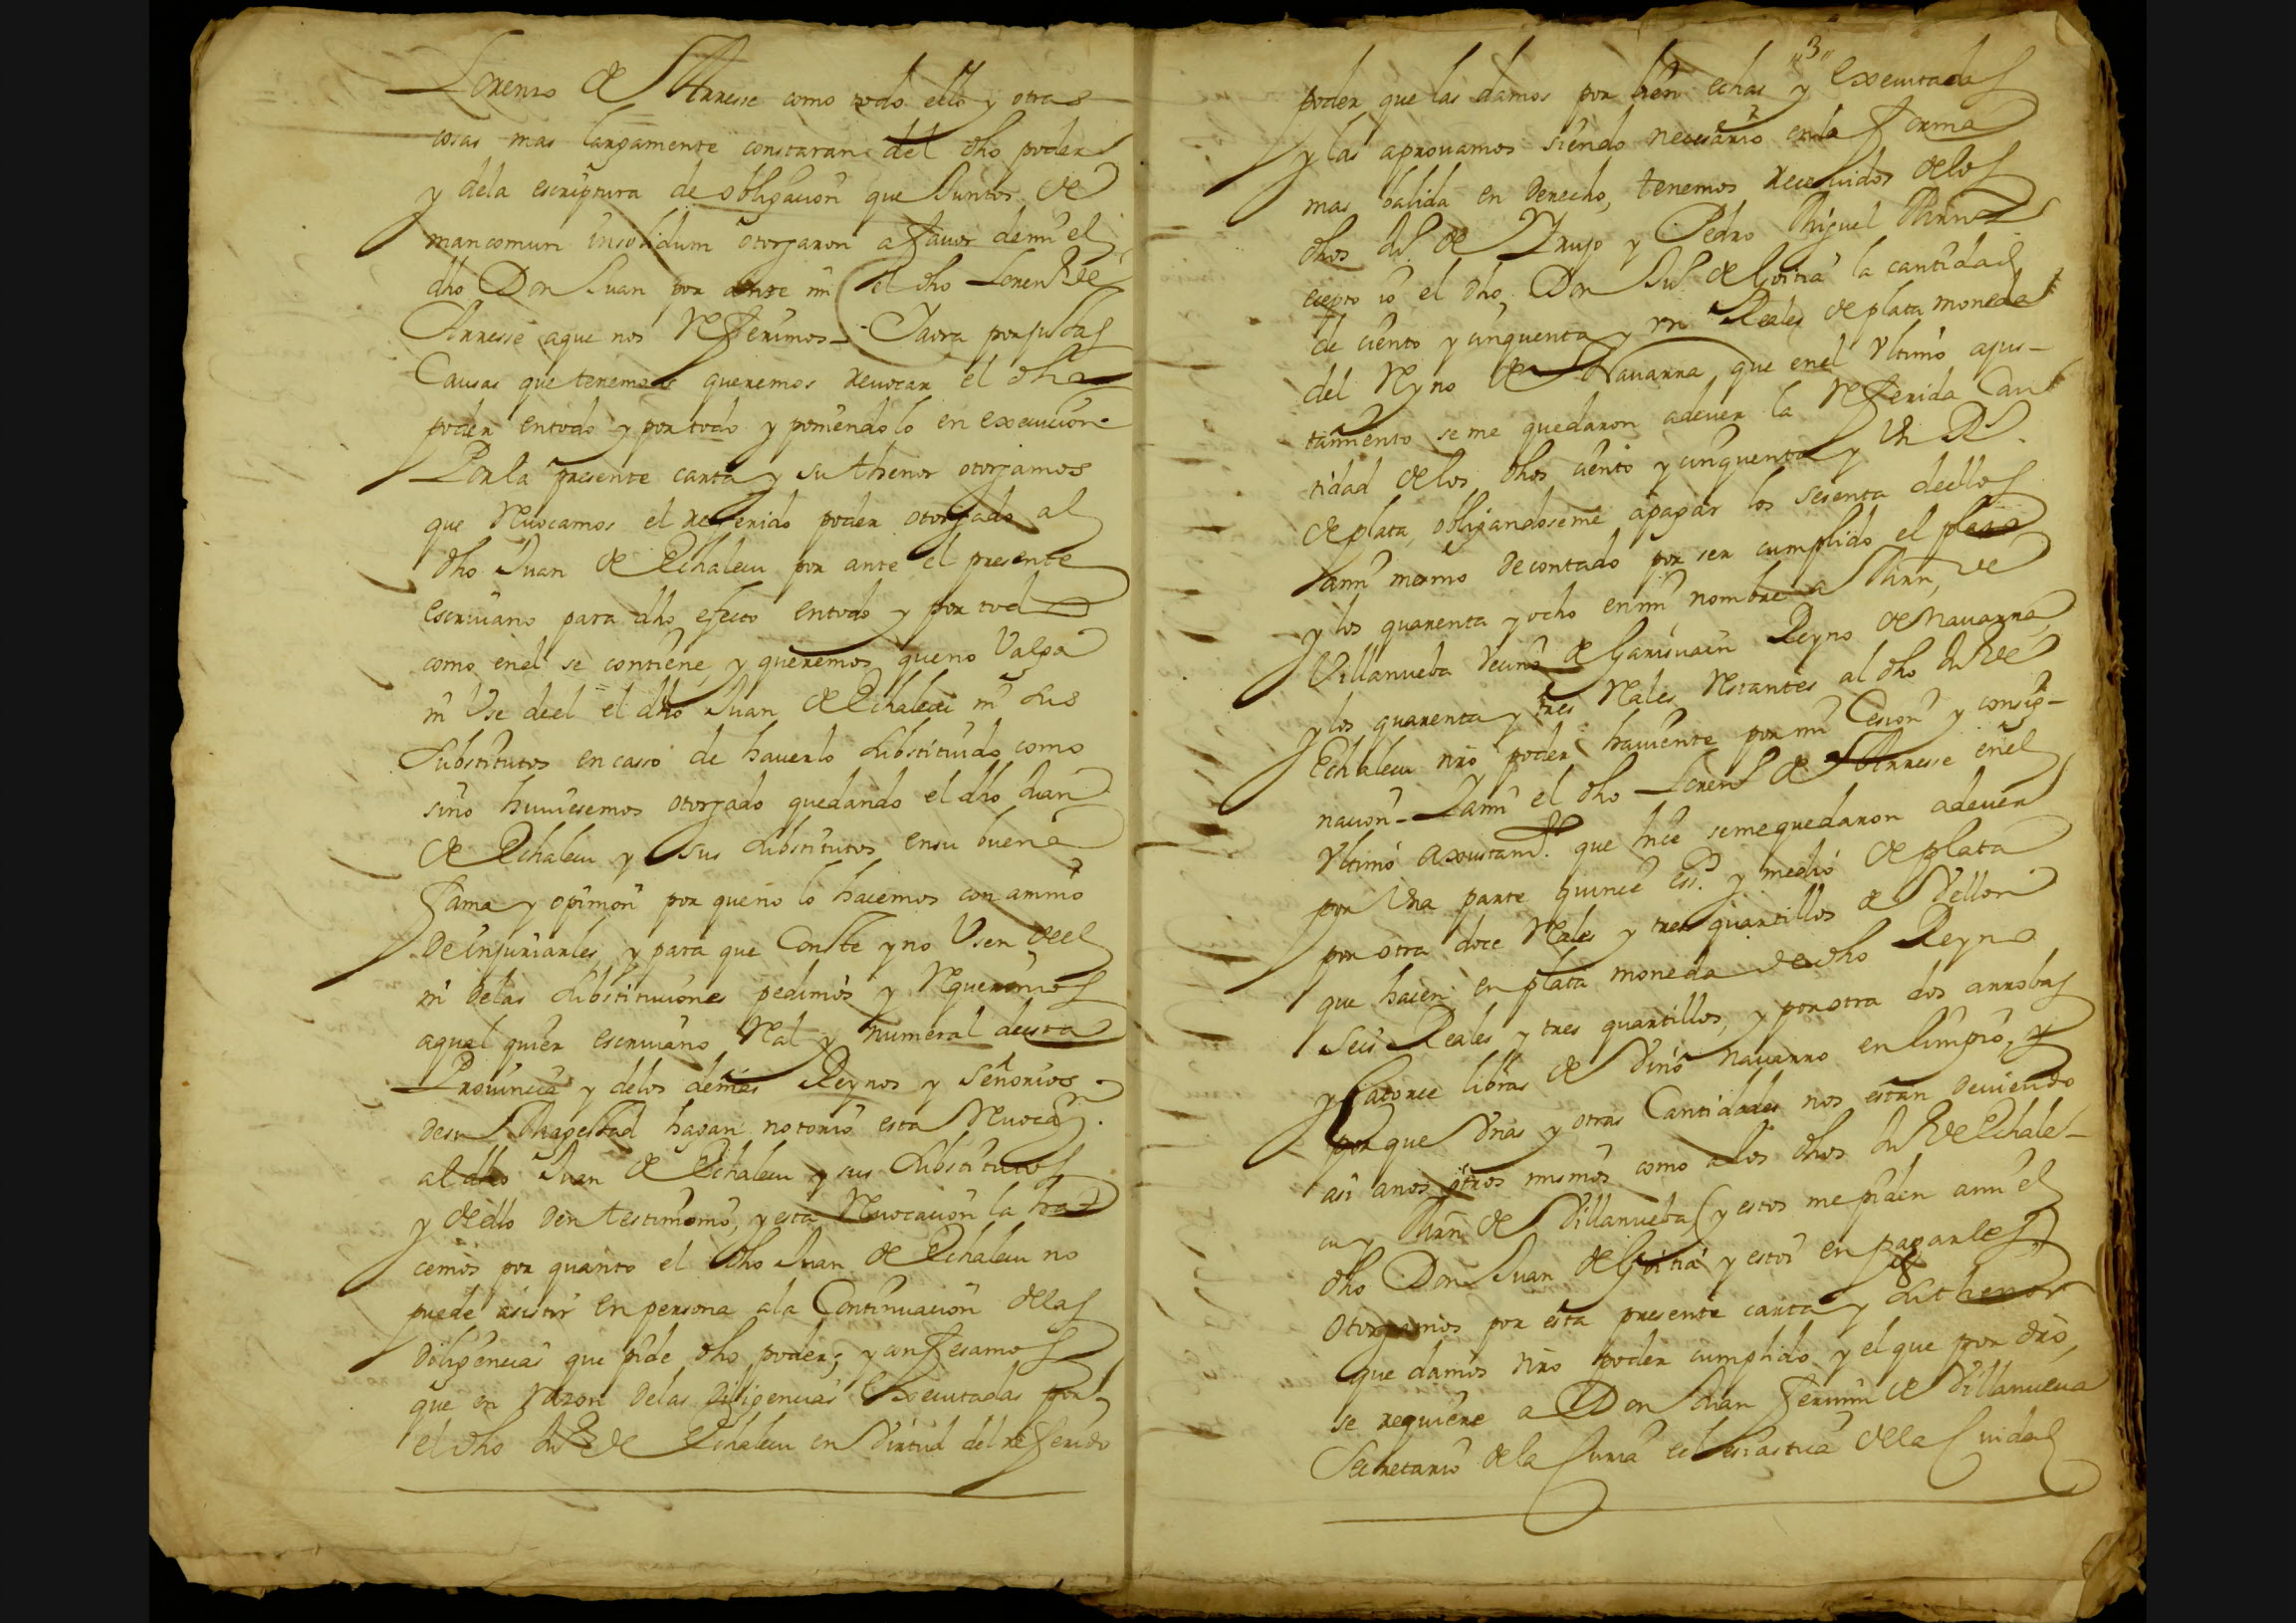 Lorenzo de Arresse como todo ello y otras
cosas mas largamente constaran del dho poder
y dela escriptura de obligacion que Juntos de
mancomun insolidum otorgaron afavor demi el
dho Don Juan por ante mi el dho Lorenzo de
Arresse aque nos Referimos. Yaora porjustas
Causas que tenemos queremos revocar el dho
poder entodo y portodo y poniendolo en execucion
Porla presente carta y su thenor otorgamos
que Revocamos el referido poder otorgado al
dho Juan de Echalecu por ante el presente
escrivano para dho efecto entodo y por todo
como enel se contiene, y queremos queno Valga
ni Use deel el dho Juan de Echalecu ni sus
substitutos encasso de haverlo substituido como
sino huviesemos otorgado quedando el dho Juan
de Echalecu y sus substitutos ensu buena
fama y opinion por queno lo hacemos con animo
de injuriarles, y para que Conste yno Usen deel
ni delas substituciones pedimos y Requerimos
aqual quier escrivano Real y numeral desta
Provincia y delos demas Reynos y señorios
desu Magestad hagan notorio esta Revocaon.
al dho Juan de Echalecu y sus substitutos
y dello den testimonio, y esta Revocacion la ha-
cemos por quanto el dho Juan de Echalecu no
puede asistir en persona ala Continuacion delas
diligencias que pide dho poder; y confesamos
que en razon delas diligencias Executadas por
el dho Jun de Echalecu en Virtud del referido
"3"
poder que las damos por bien echas y Executadas
y las aprovamos siendo necesario enla forma
mas balida en derecho, tenemos recevidos delos
dhos Jun. de Yrujo y Pedro Miguel Mrnz
ecepto io el dho Don Jun de Goitia la cantidad
de ciento y cinquenta y un Reales de plata moneda
del Reyno de Navarra, que enel Ultimo ajus-
tamiento se me quedaron adever la Referida Can
tidad delos dhos ciento y cinquenta y un Rs.
de plata, obligandoseme apagar los sesenta deellos
ami mismo decontado por ser cumplido el plazo
y los quarenta y ocho enmi nombre a Mrn, de
Villanueba Vecino de Garisoain Reyno de Navarra,
y los quarenta y tres Reales Restantes al dho Jun de
Echalecu nro poder haviente por mi Cesion y consig-
nacion- Yami el dho Lorenzo de Arresse enel
Ultimo axustamto. que hice semequedaron adever
por Una parte quince ess.s y medio de plata
por otra doce Reales y tres quartillos de Vellon
que hacen en plata moneda de dho Reyno
Seis Reales y tres quartillos, y por otra dos arrobas
y Catorce libras de Vino navarro en limpio, y
por que Unas y otras Cantidades nos estan deviendo
asi anos otros mismos como alos dhos Jun de Echale-
cu y Mrn de Villanueba (y estos me piden ami el
dho Don Juan de Goitia y estoi en pagarles)
Otorgamos por esta presente carta y su thenor
que damos nro poder cumplido y el que por dro,
se requiere a Don Juan fermin de Villanueva
Secretario dela Curia eclesiastica dela Ciudad